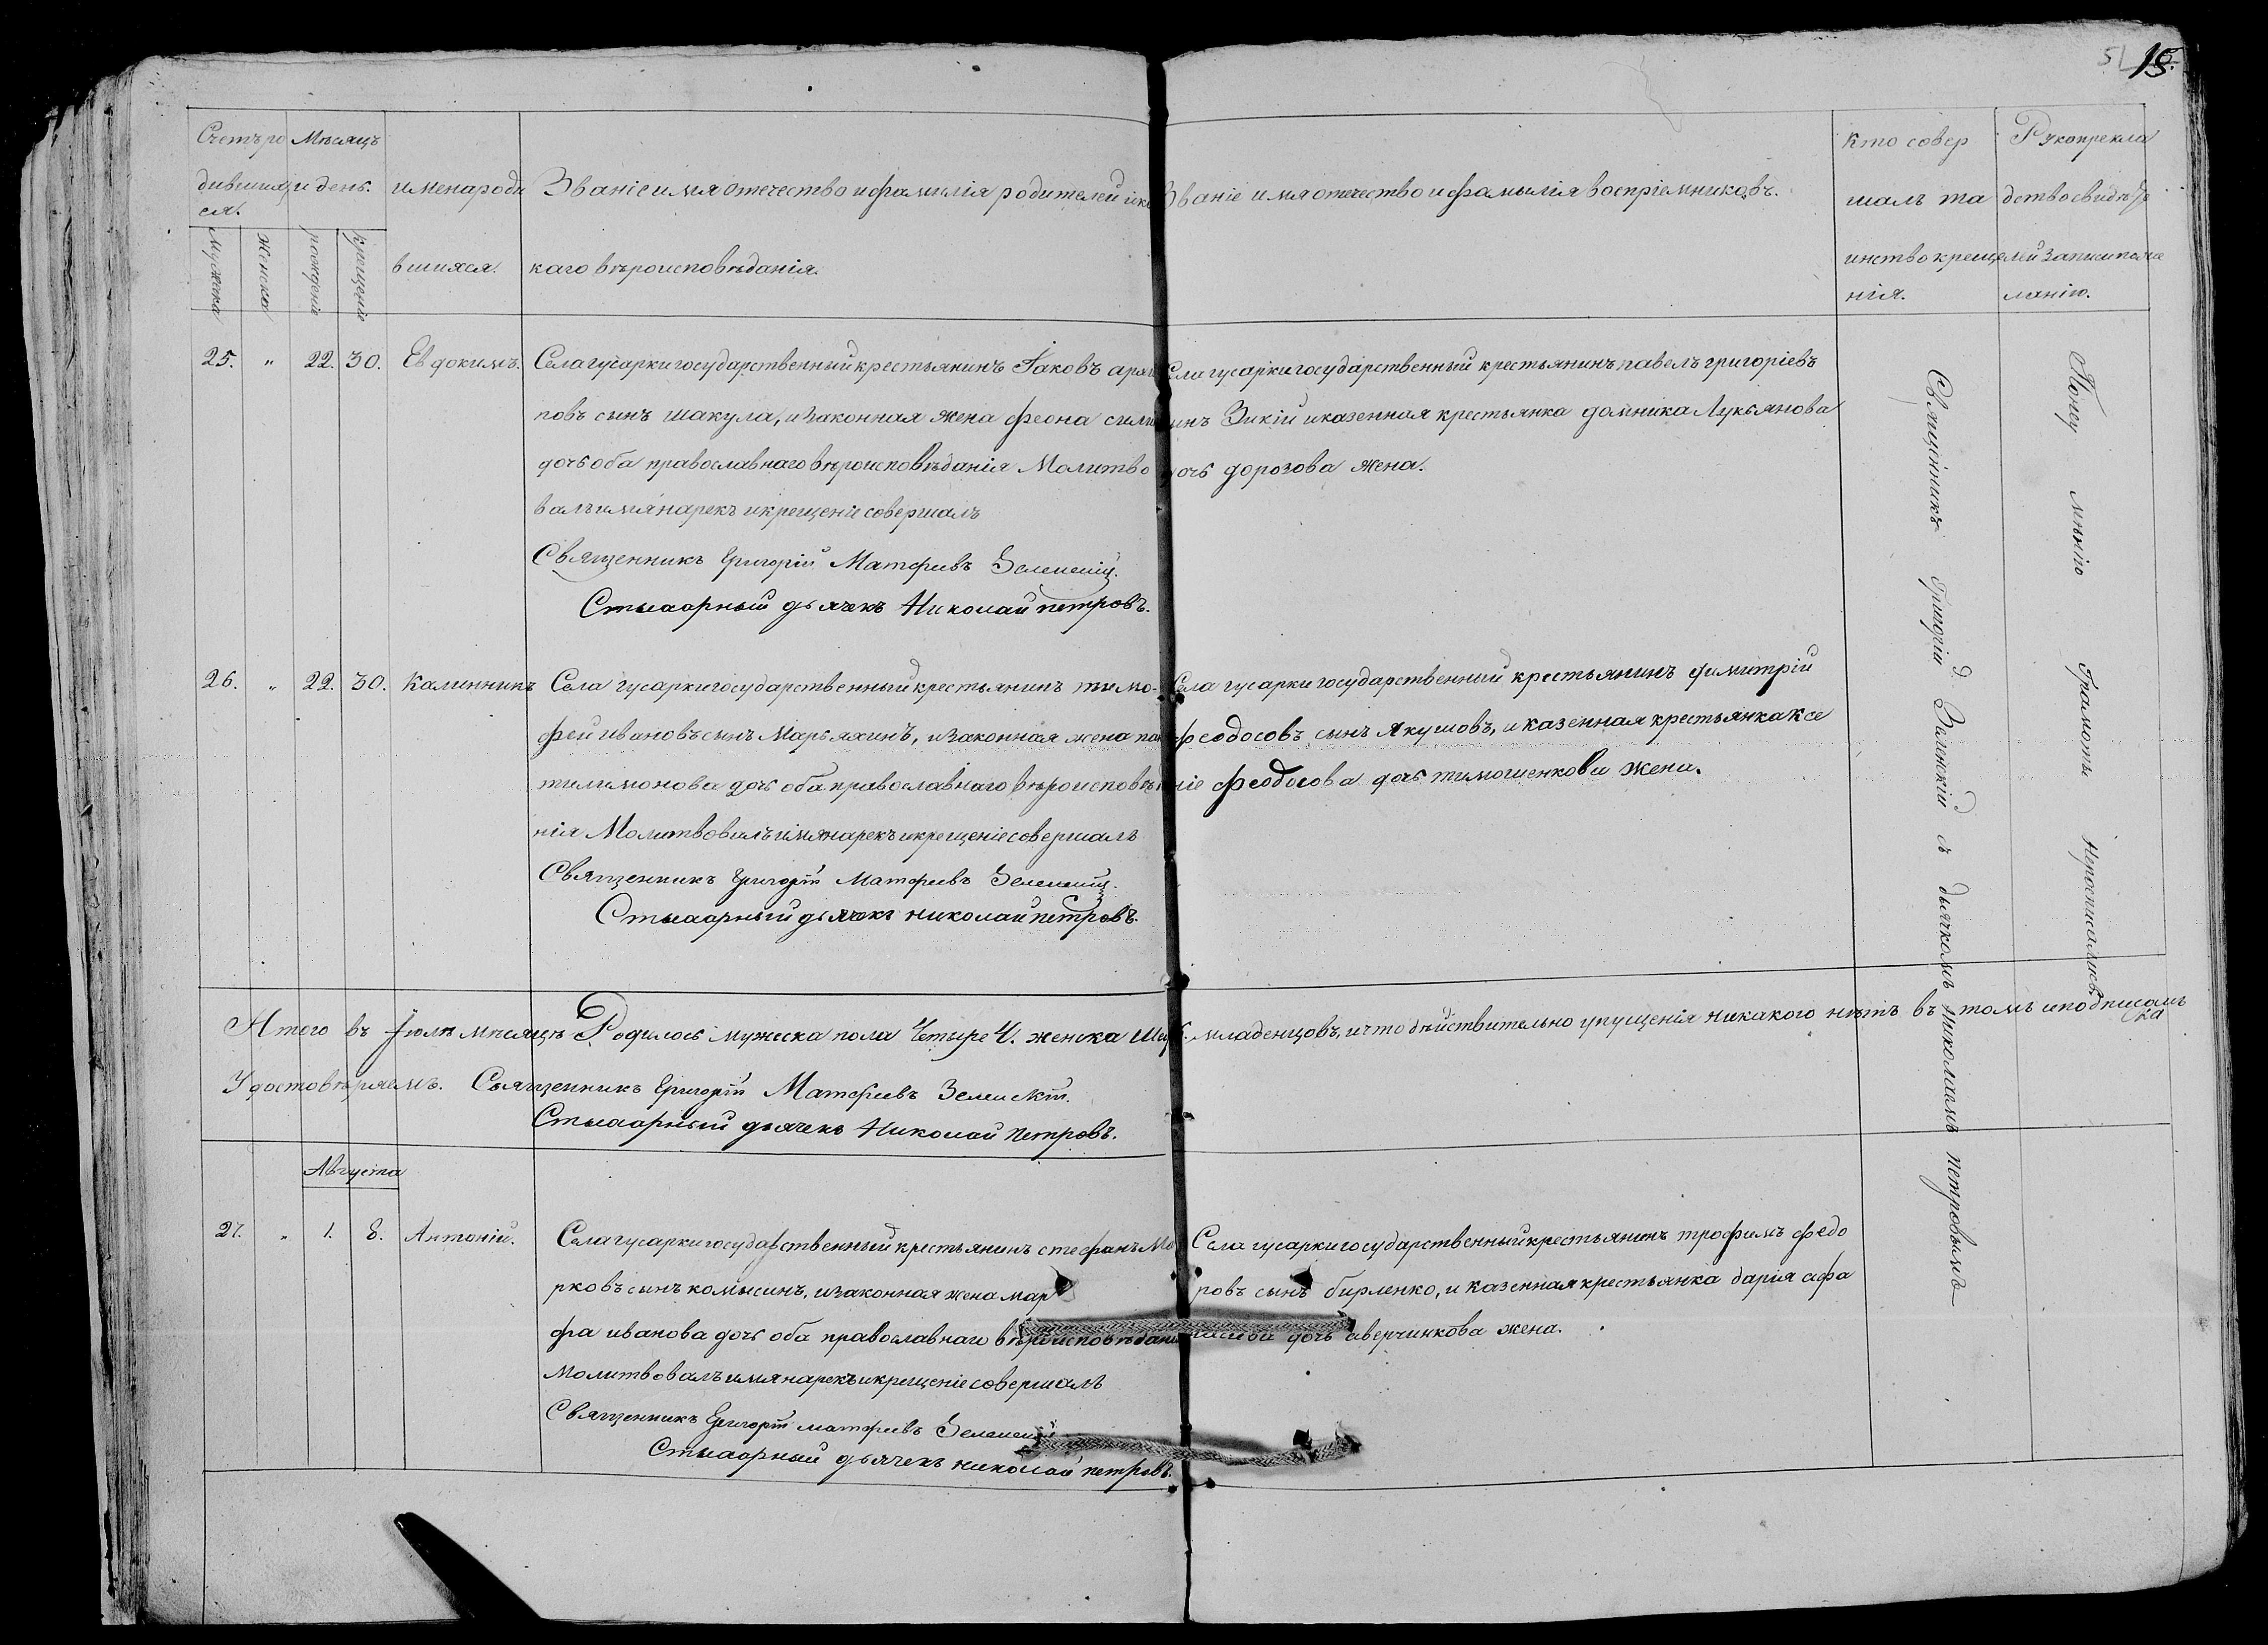 51 15.
Счетъ ро
дивших
ся.
Мужска
Женска
Мѣсяцъ
и день.
рожденіе
крещеніе
имена роди
вшихся.
Званіе имя отечество и фамилія родителей и ка
каго вѣроисповѣданія.
Званіе имя отечество и фамылія воспріемниковъ.
Кто совер
шалъ та
инство креще
нія.
Рукопрекла
дство свидѣ
лей записи поже
ланію.
25. " 22. 30. Евдокимъ.
Села гусарки государственный крестьянинъ Іаковъ архи
повъ сынъ шакула, и законная жена феона
дочь оба православнаго вѣроисповѣданія Молитво
валъ имя нарекъ и крещеніе совершалъ
Священникъ Григорій Матфеевъ Зеленскій.
Стихарный дьячекъ Николай петровъ.
Села гусарки государственный крестьянинъ павелъ григоріевъ
и казенная крестьянка домника Лукьянова
дочь дорозова жена.
26. " 22. 30. Каллинникъ
Села гусарки государственный крестьянинъ тимо-
фей ивановъ сынъ Марьяхинъ, и законная жена
тилимонова дочь оба православнаго вѣроисповѣда
нія Молитвовалъ имя нарекъ и крещеніе совершалъ
Священникъ Григорій Матфеевъ Зеленскій.
Стихарный дьячекъ николай петровъ.
Села гусарки государственный крестьянинъ димитрій
феодосовъ сынъ Якушовъ, и казенная крестьянка ксе
ніе феодосова дочь тимошенкова жена.
Итого въ Іюлѣ мѣсяцѣ Родилось мужеска пола Четыре 4. женска младенцовъ, и что дѣйствительно упущенія никакого нѣтъ въ томъ и подписомъ
Удостовѣряемъ. Священникъ Григорій Матфеевъ Зеленскій.
Стихарный дьячекъ Николай петровъ.
Августа
27. " 1. 8. Антоній.
Села гусарки государственный крестьянинъ стефанъ Ма
рковъ сынъ комысинъ, и законная жена мар
фа иванова дочь оба православнаго вѣроисповѣдані
Молитвовалъ имя нарекъ и крещеніе совершалъ
Священникъ Григорій матфеевъ Зеленскій
Стихарный дьячекъ николай петровъ.
Села гусарки государственный крестьянинъ трофимъ федо
ровъ сынъ бирленко, и казенная крестьянка дарія афа
дочь аверчинкова жена.
Священникъ Григорій Зеленскій съ дьячкомъ николаемъ петровымъ
Полну мнѣнію Грамоты Неросписались.